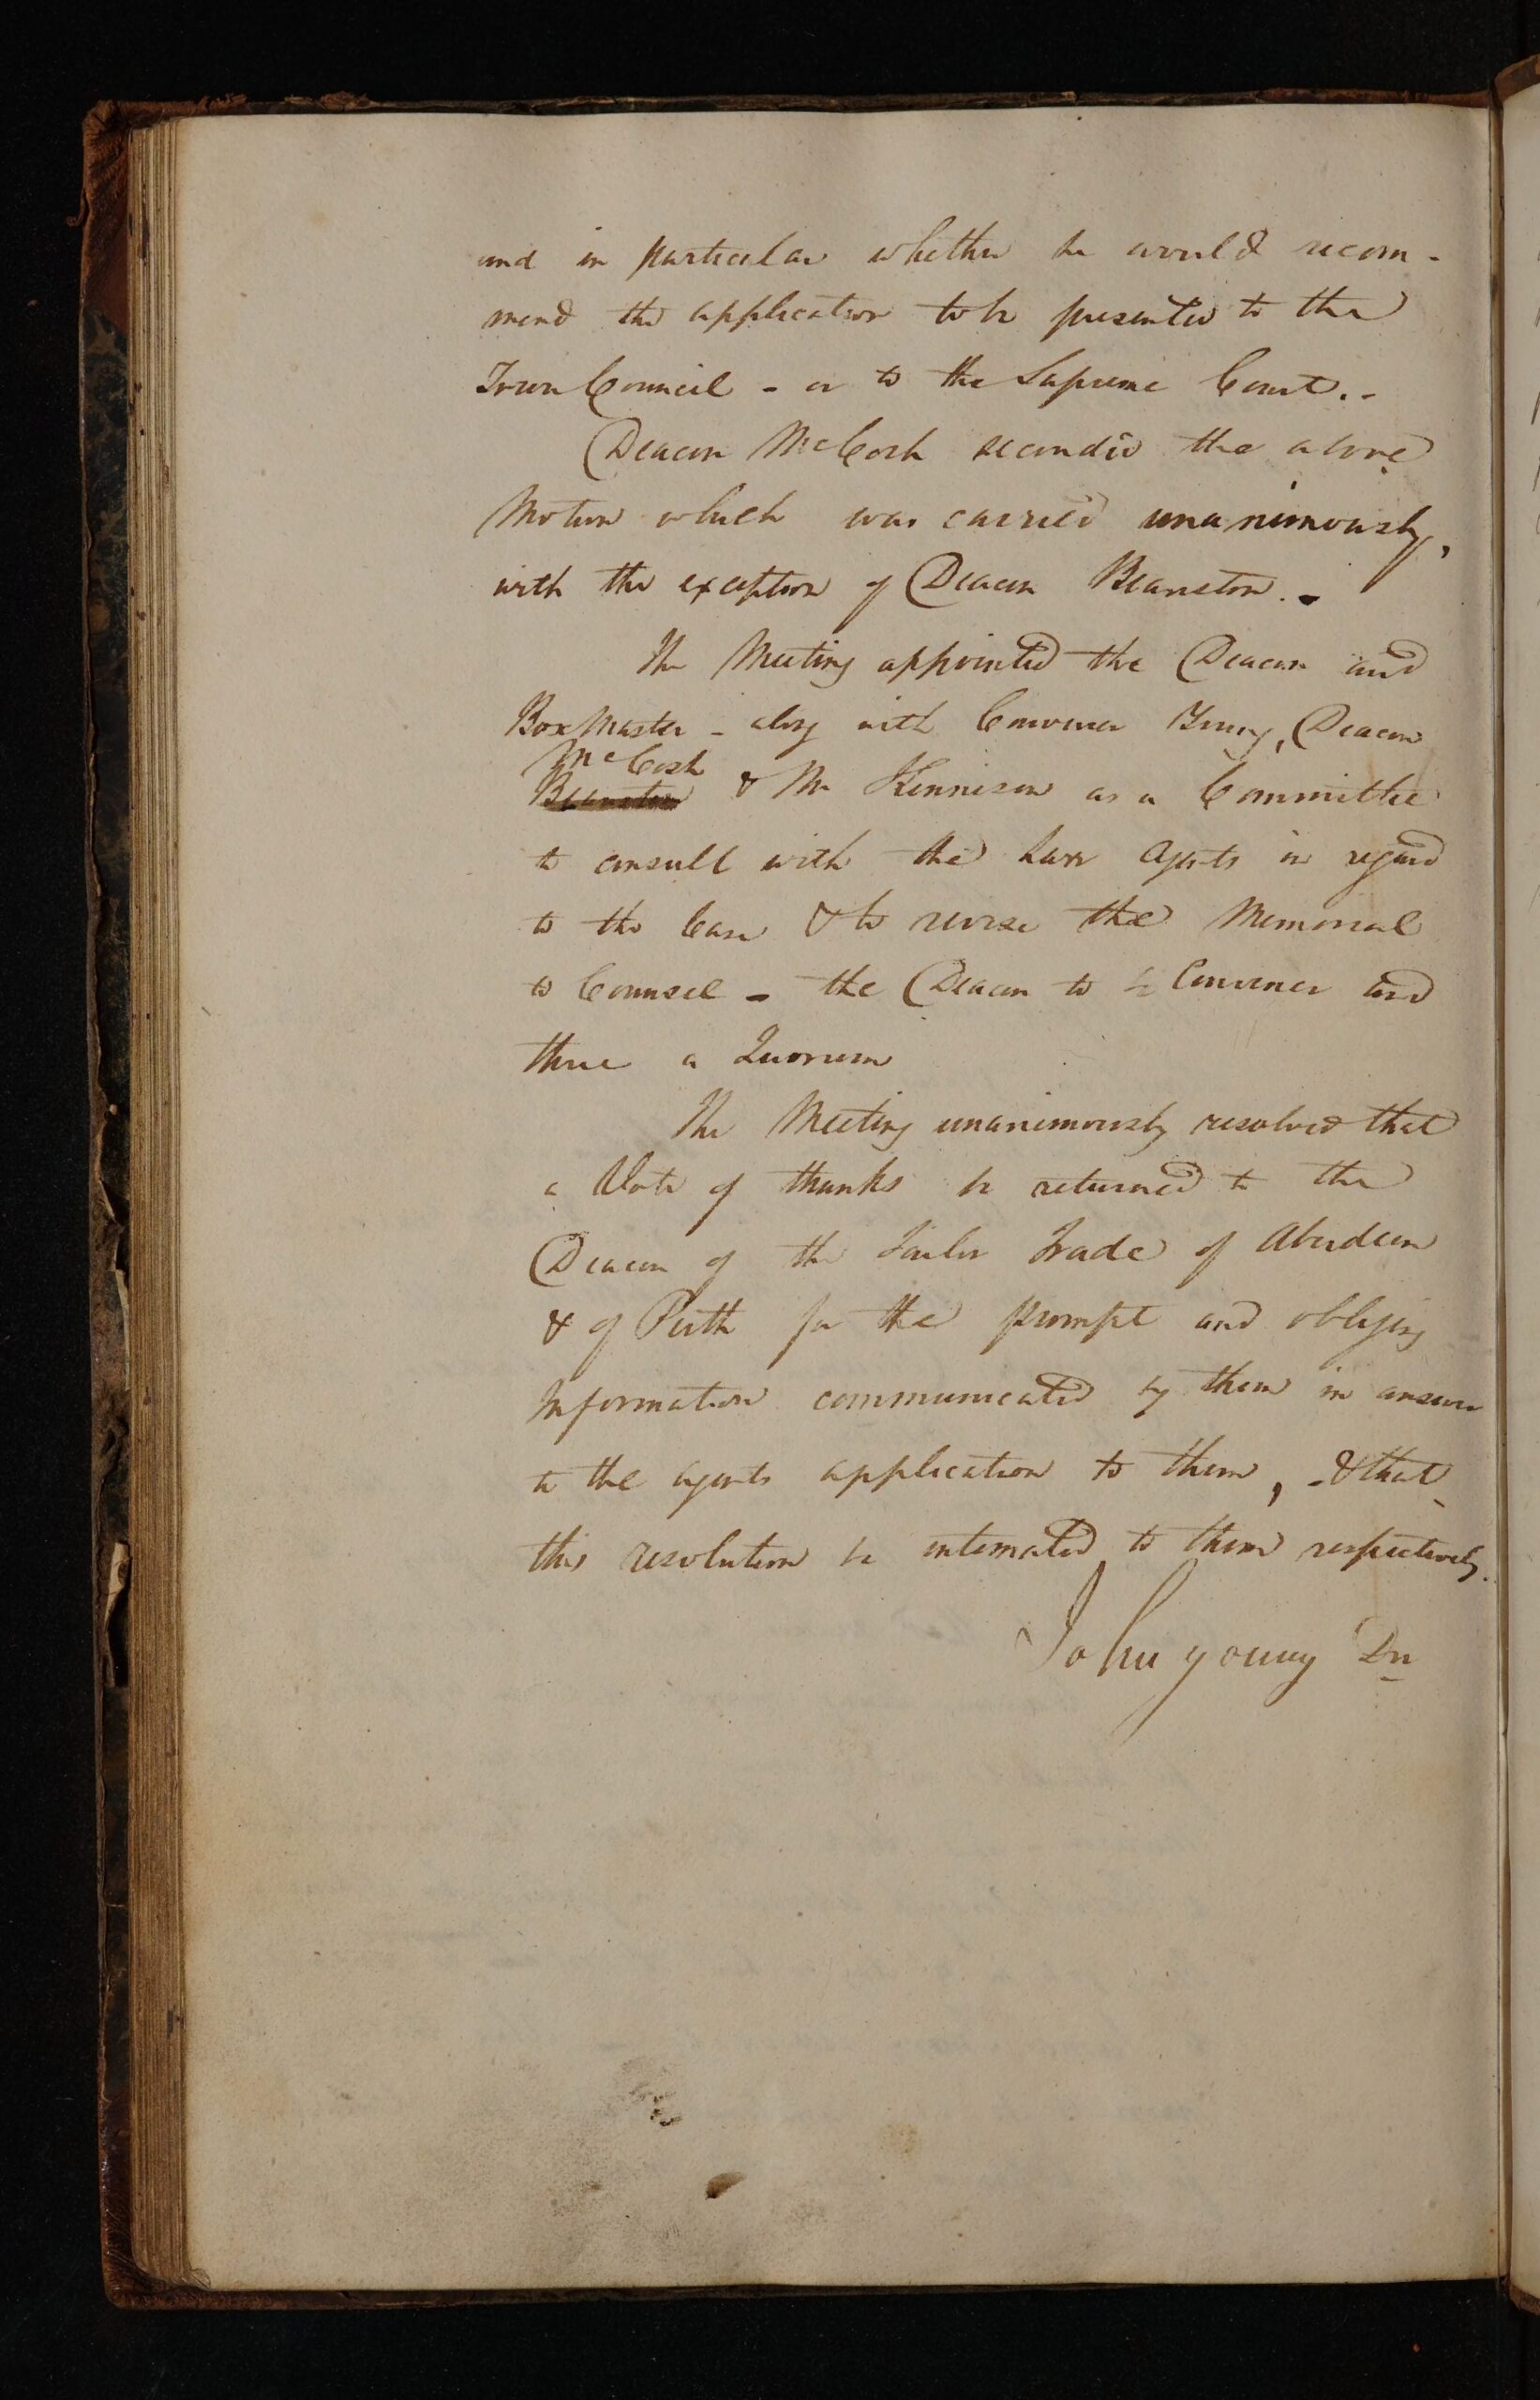 and in particular whether he would recom-
mend the application to be presented to the
Town Council - or to the Supreme Court. -
Deacon McCosh seconded the above
Motion which was carried unanimously,
with the exception of Deacon Beanston. -
The Meeting appointed the Deacon and
Box Master - along with Convener Young, Deacon
McCosh
Beanston & Mr Kennison as a Committee
to consult with the Law Agents in regard
to the Case & to revise the Memorial
to Counsel - the Deacon to be Convener and
three a Quorum
The Meeting unanimously resolved that
a Vote of thanks be returned to the
Deacon of the Tailor Trade of Aberdeen
& of Perth for the prompt and obliging
Information communicated by them in answer
to the agents application to them, - & that
this resolution be intimated to them respectively.
John young Dn